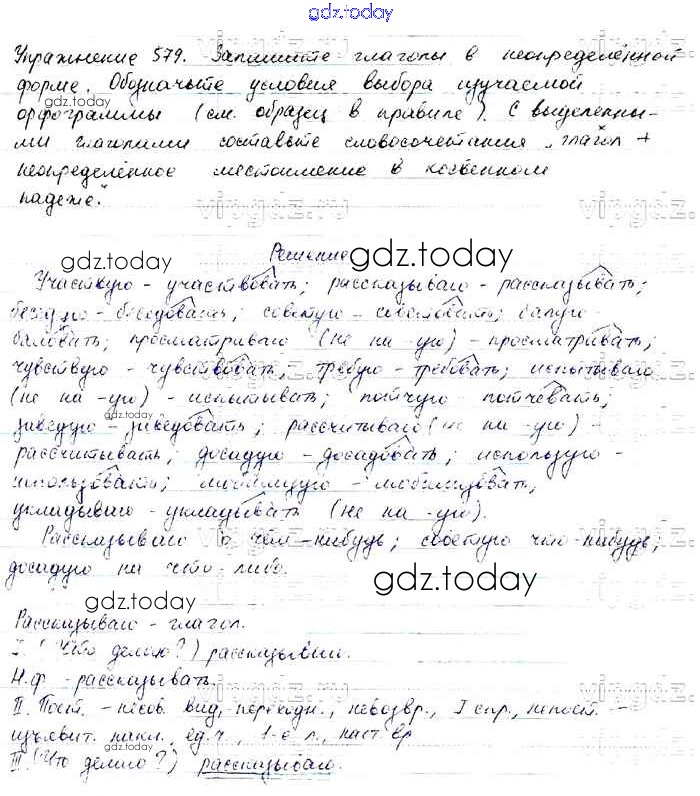 gdz.today
Упражнение 579. Запишите глаголы в неопределённой
форме. Обозначьте условия выбора изучаемой
gdz.today
орфограммы (см. образец в правиле). С выделенны-
ми глаголами составьте словосочетания „глагол +
неопределённое местоимение в косвенном
падеже."
vipgdz.ru
vipgdz.ru
Решение
gdz.today
gdz.today
Участвую - участвовать; рассказываю - рассказывать;
беседую - беседовать; советую - советовать; балую -
баловать; просматриваю (не на -ую) - просматривать;
чувствую - чувствовать; требую - требовать; испытываю
(не на -ую) - испытывать; потчую - потчевать;
gdz.today
заведую - заведовать; рассчитываю (не на -ую) -
рассчитывать; досадую - досадовать; использую -
использовать; мобилизую - мобилизовать;
укладываю - укладывать (не на -ую).
vipgdz.ru
vipgdz.ru
Рассказываю о чём-нибудь; советую что-нибудь;
досадую на что-либо.
gdz.today
gdz.today
Рассказываю - глагол.
I. (Что делаю?) рассказываю.
Н.ф - рассказывать.
vipgdz.ru
vipgdz.ru
II. Пост. - несов. вид, переходн., невозвр., I спр., непост. -
изъявит. накл., ед.ч., 1-е л., наст. вр
gdz.today
III. (Что делаю?) рассказываю.